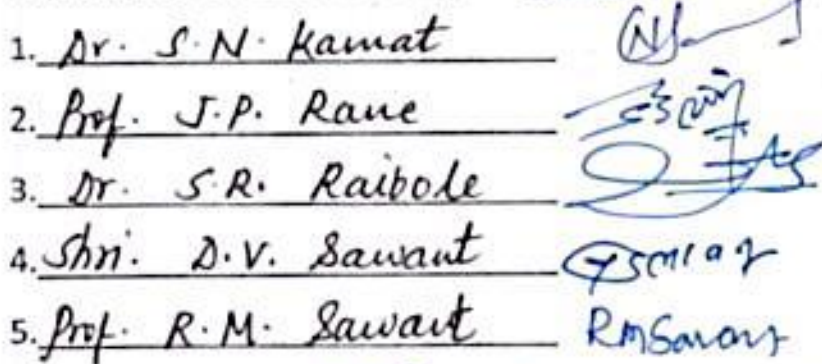 1. Dr. S.N. Kamat
2. Prof. J.P. Rane
3. Dr. S.R. Raibole
4. Shri. D.V. Sawant
5. Prof. R.M. Sawant RMSawant